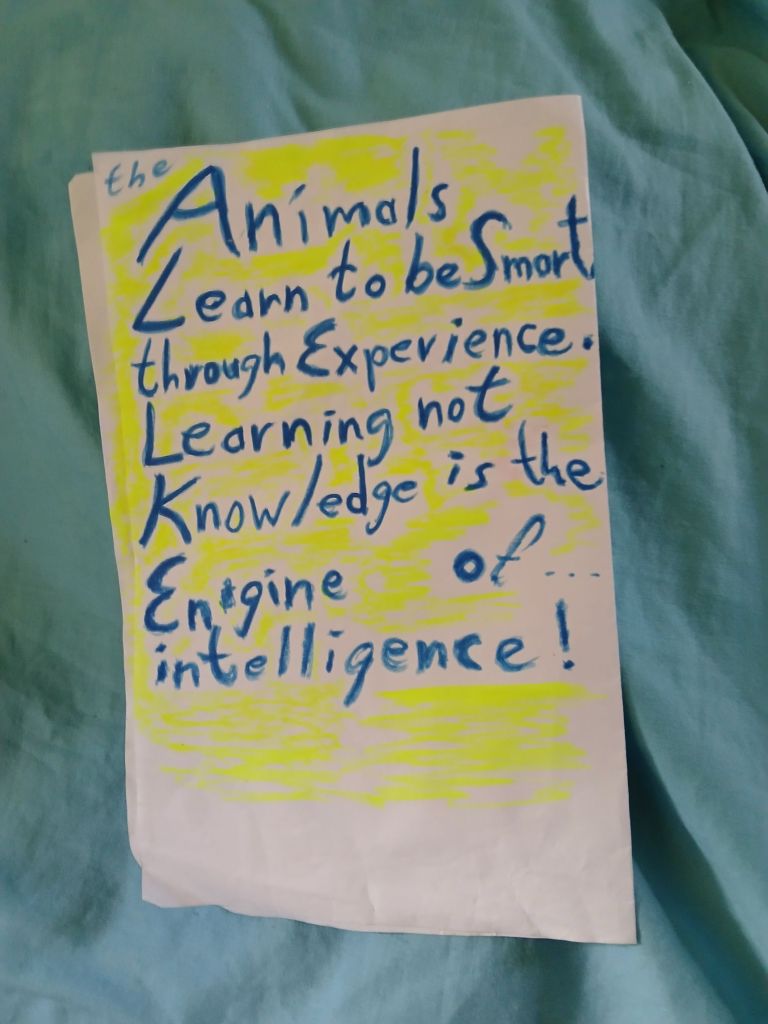 the Animals
Learn to be Smart
through Experience.
Learning not
Knowledge is the
Engine of ...
intelligence!